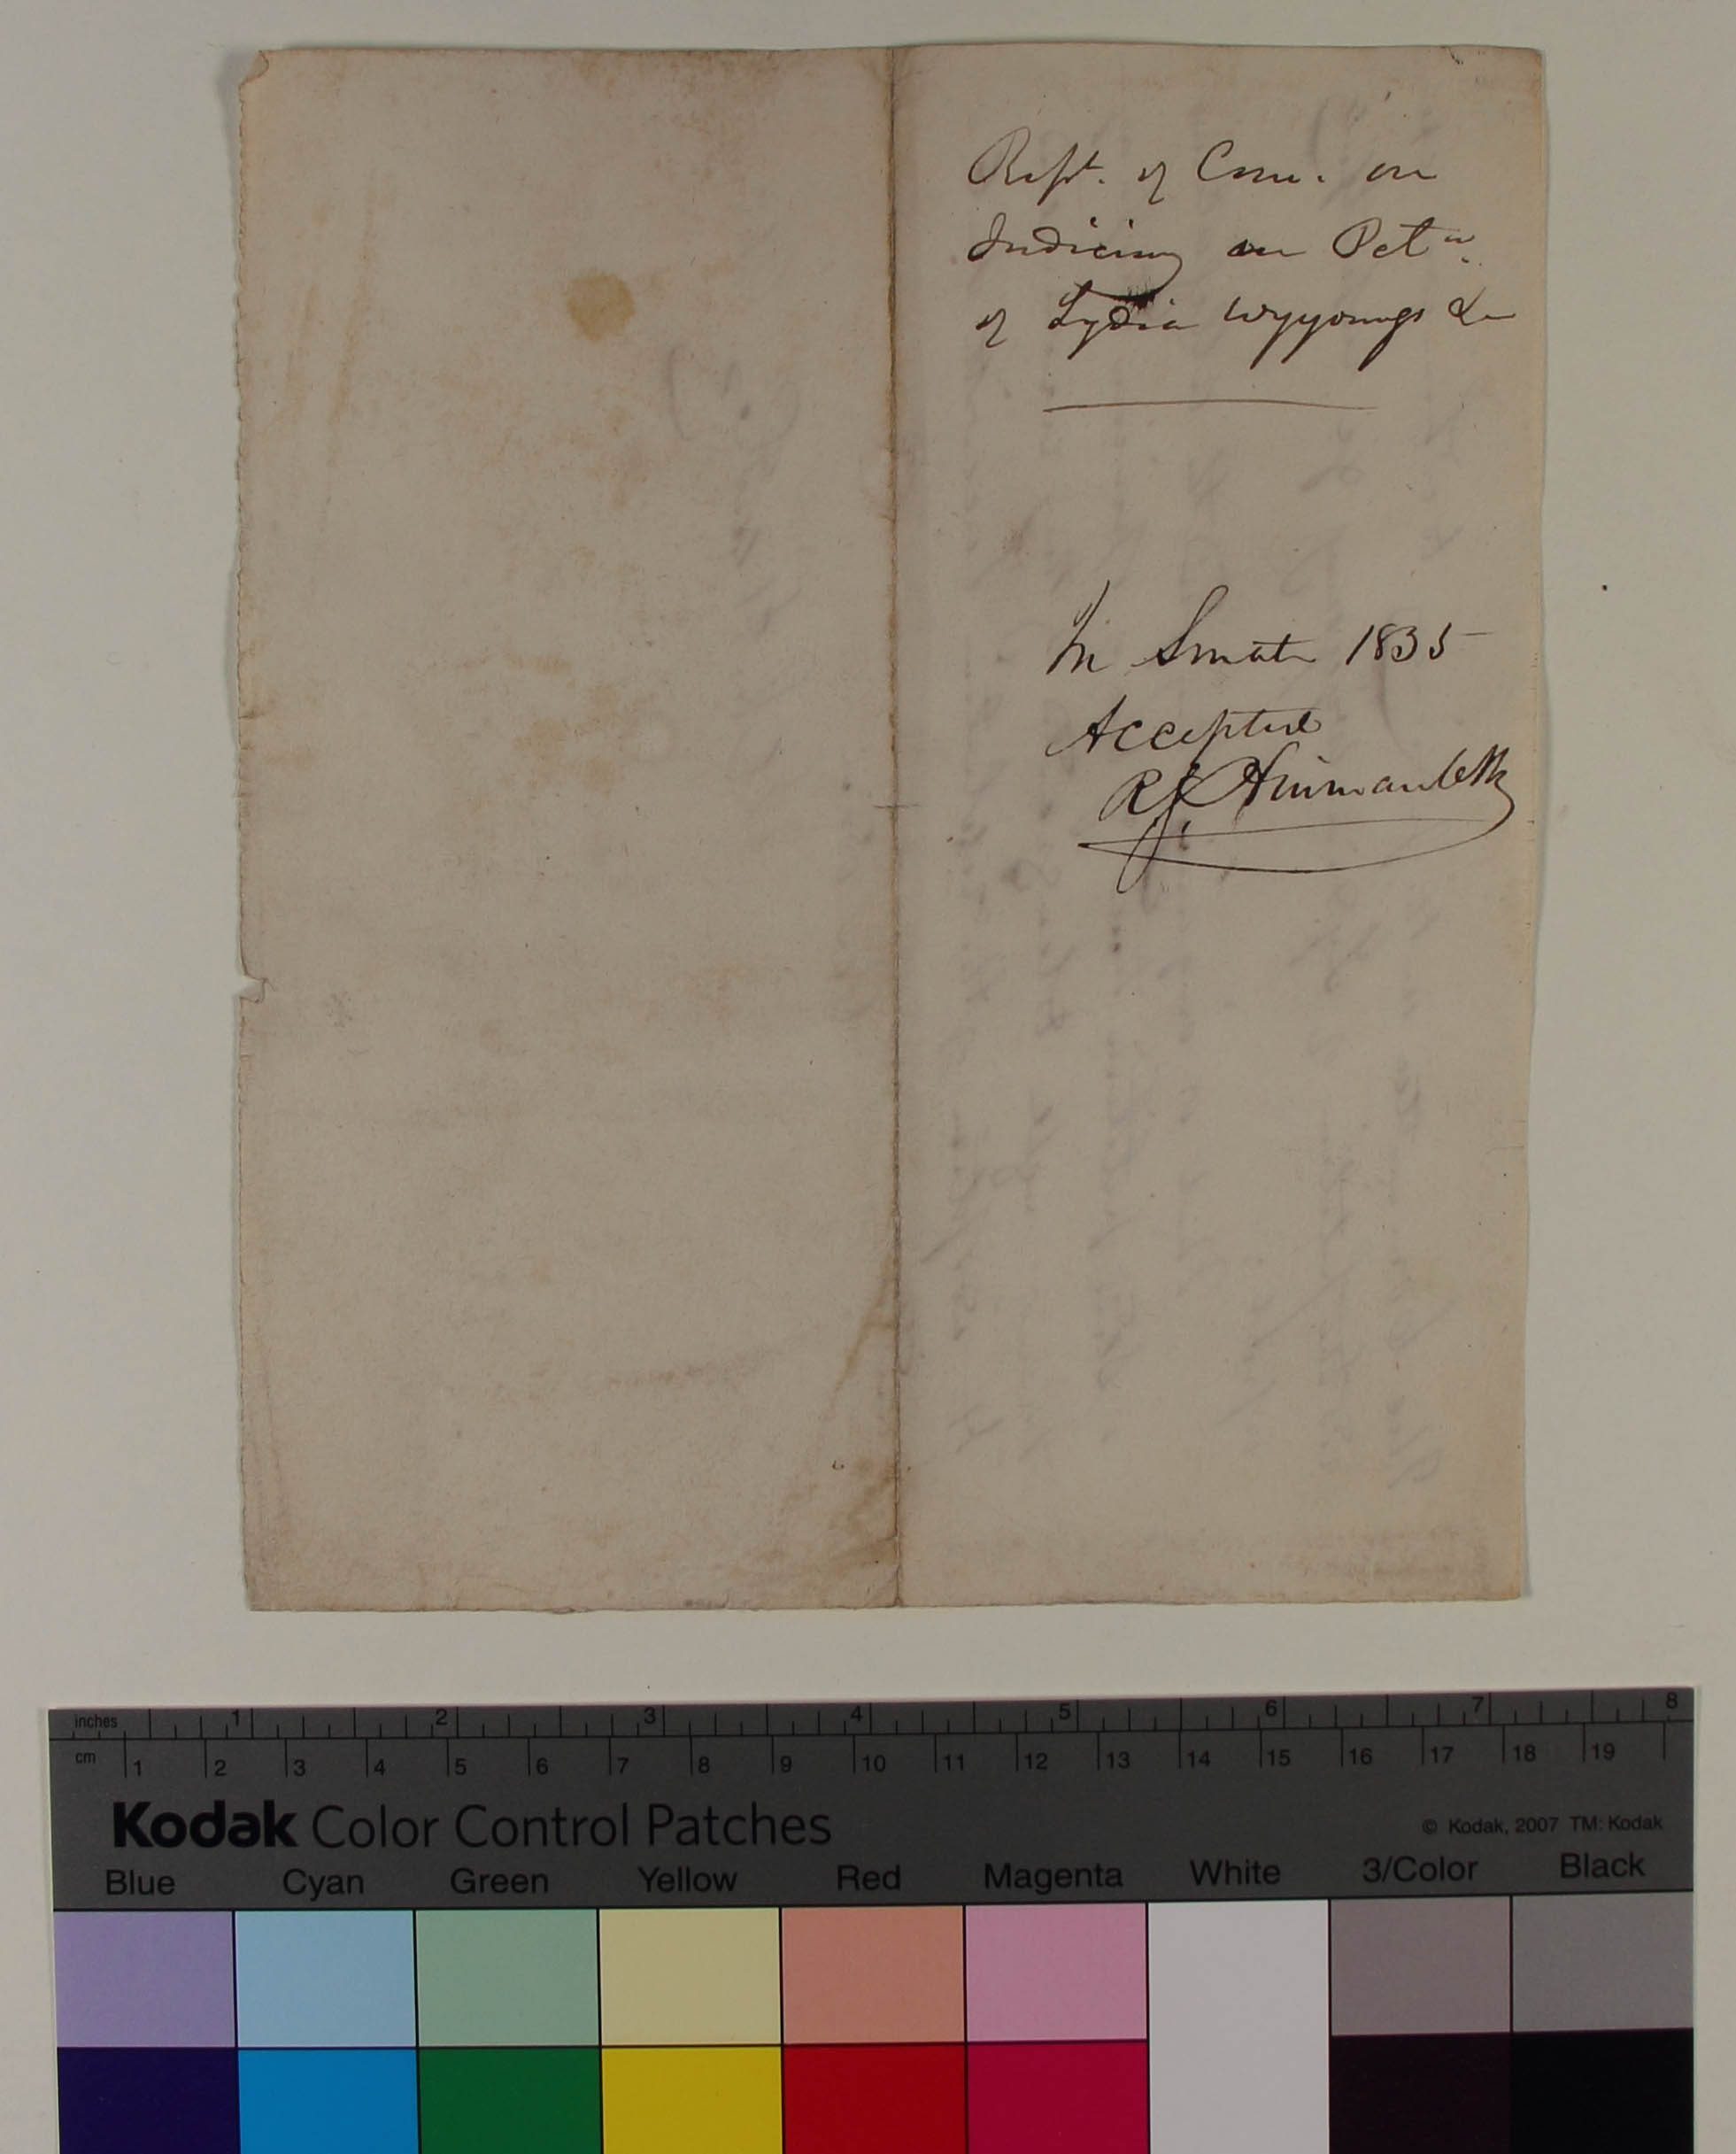 Rept. of Com. on
Judiciary on Petn.
of Lydia Wyyougs &c
In Senate 1835
Accepted
R. R. Hinman Clk
inches 1 2 3 4 5 6 7 8
cm 1 2 3 4 5 6 7 8 9 10 11 12 13 14 15 16 17 18 19
Kodak Color Control Patches
© Kodak, 2007 TM: Kodak
Blue Cyan Green Yellow Red Magenta White 3/Color Black